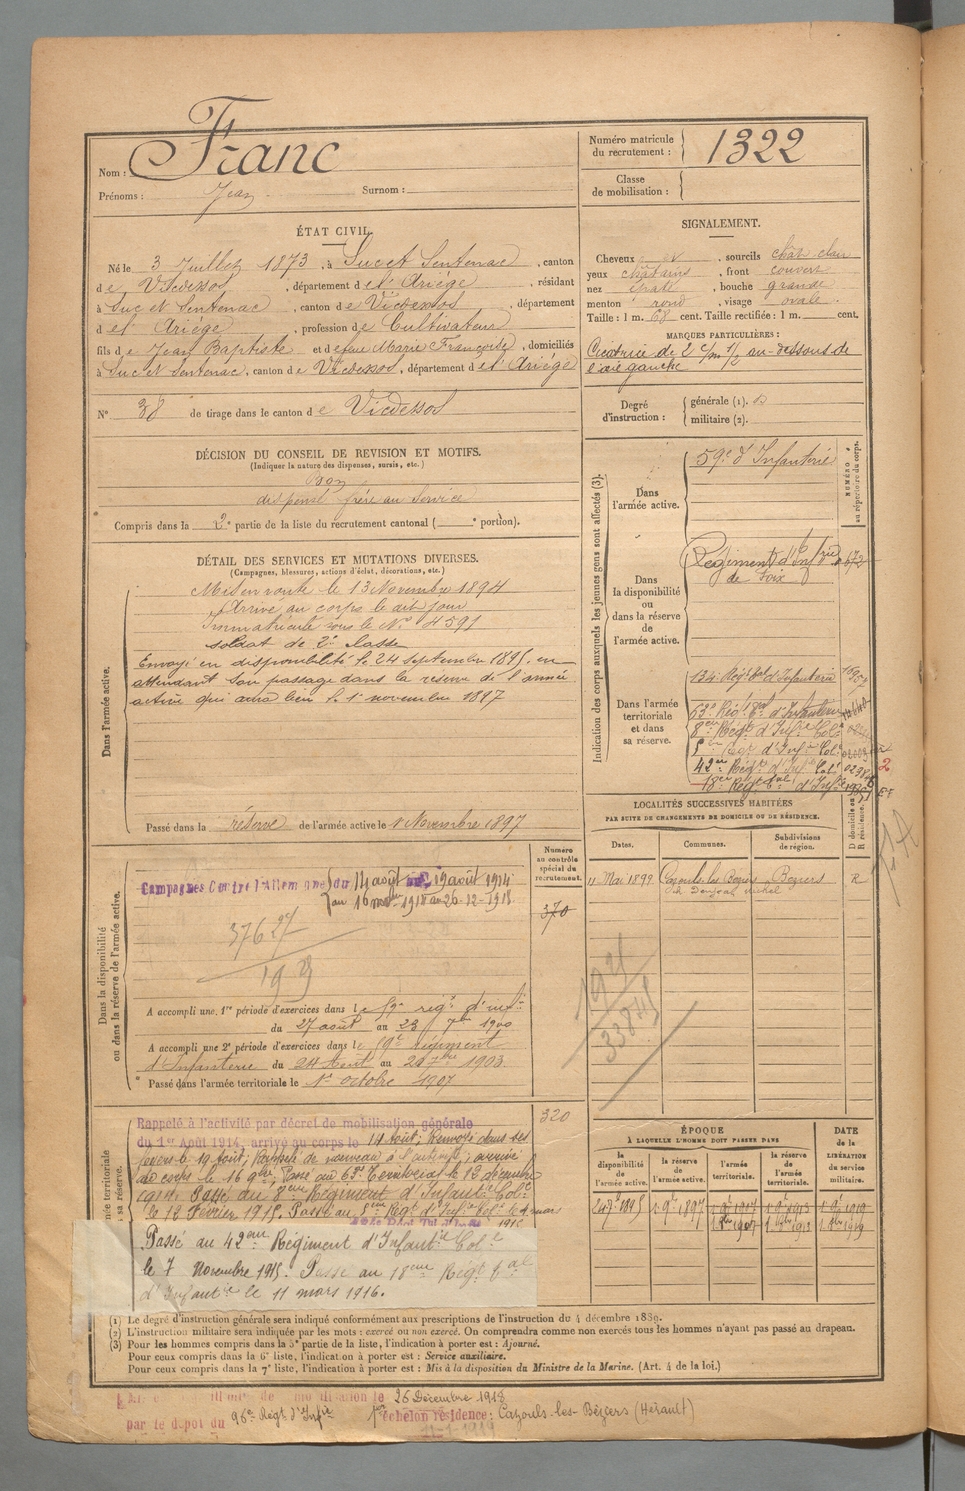 Nom : Franc
Prénoms : Jean Surnom :
Numéro matricule du recrutement : 1322
Classe de mobilisation :
ÉTAT CIVIL.
Né le 3 Juillet 1873, à Suc et Sentenac, canton
de Vicdessos, département de l'Ariège, résidant
à Suc et Sentenac, canton de Vicdessos, département
de l'Ariège, profession de Cultivateur
fils de Jean Baptiste et de feue Marie Françoise, domiciliés
à Suc et Sentenac, canton de Vicdessos, département de l'Ariège
N° 38 de tirage dans le canton de Vicdessos
SIGNALEMENT.
Cheveux et, sourcils chât clair
yeux châtains, front couvert
nez épaté, bouche grande
menton rond, visage ovale.
Taille : 1 m. 68 cent. Taille rectifiée : 1 m. cent.
MARQUES PARTICULIÈRES :
Cicatrice de 2 c/m 1/2 au-dessous de
l'œil gauche
Degré d'instruction : générale (1).
militaire (2).
DÉCISION DU CONSEIL DE REVISION ET MOTIFS.
(Indiquer la nature des dispenses, sursis, etc.)
Bon
dispensé frère au service
Compris dans la 2e partie de la liste du recrutement cantonal ( e portion).
DÉTAIL DES SERVICES ET MUTATIONS DIVERSES.
(Campagnes, blessures, actions d'éclat, décorations, etc.)
Dans l'armée active.
Mis en route le 13 Novembre 1894
Arrivé au corps le dit jour
Immatriculé sous le N° 4591
soldat de 2e classe
Envoyé en disponibilité le 24 septembre 1895, en
attendant son passage dans la réserve de l'armée
active qui aura lieu le 1er novembre 1897
Passé dans la réserve de l'armée active le 1 Novembre 1897
Indication des corps auxquels les jeunes gens sont affectés (3).
NUMÉRO au répertoire du corps.
Dans l'armée active.
59e d'Infanterie
Dans la disponibilité ou dans la réserve de l'armée active.
Régiment d'Infrie 672
de Foix
Dans l'armée territoriale et dans sa réserve.
134 Régt tal d'Infanterie
63e Régt tal d'Infanterie
8eme Régt d'Infrie Cole
5eme Régt d'Infie Cole
42eme Régt d'Inf Col
18eme Régt tal d'Infie
LOCALITÉS SUCCESSIVES HABITÉES
PAR SUITE DE CHANGEMENTS DE DOMICILE OU DE RÉSIDENCE.
Dates. Communes. Subdivisions de région. D domicile ou R résidence.
11 Mai 1899 Cazouls les Béziers Béziers R
Dans la disponibilité ou dans la réserve de l'armée active.
Numéro au contrôle spécial du recrutement.
370
Campagnes Contre l'Allemagne du 14 août au 19 août 1914
au 26-12-1918
A accompli une 1re période d'exercices dans le 59e regt d'infie
du 27 août au 23 7bre 1900
A accompli une 2e période d'exercices dans le 59e régiment
d'Infanterie du 24 Août au 20 7bre 1903
Passé dans l'armée territoriale le 1er octobre 1907
1921
33845
320
Rappelé à l'activité par décret de mobilisation générale
du 1er Août 1914, arrivé au corps le 14 août; Renvoyé dans ses
foyers le 19 Août; Rappelé de nouveau à l'activité; arrivé
au corps le 16 9bre; Passé au 63e Territorial le 12 décembre
1914. Passé au 8eme Régiment d'Infantie Cole
le 12 Février 1915. Passé au 5eme Régt d'Infie Cole le 4 mars
1915
Passé au 42eme Régiment d'Infantie Cole
le 7 Novembre 1915. Passé au 18eme Régt tal
d'Infantie le 11 mars 1916.
ÉPOQUE
À LAQUELLE L'HOMME DOIT PASSER DANS
la disponibilité de l'armée active. la réserve de l'armée active. l'armée territoriale. la réserve de l'armée territoriale.
DATE de la LIBÉRATION du service militaire.
1895 1897 1907 1913 1919
(1) Le degré d'instruction générale sera indiqué conformément aux prescriptions de l'instruction du 4 décembre 1889.
(2) L'instruction militaire sera indiquée par les mots : exercé ou non exercé. On comprendra comme non exercés tous les hommes n'ayant pas passé au drapeau.
(3) Pour les hommes compris dans la 5e partie de la liste, l'indication à porter est : Ajourné.
Pour ceux compris dans la 6e liste, l'indication à porter est : Service auxiliaire.
Pour ceux compris dans la 7e liste, l'indication à porter est : Mis à la disposition du Ministre de la Marine. (Art. 4 de la loi.)
le 26 Décembre 1918
par le dépôt du 96e Régt d'Infie 1er échelon résidence : Cazouls-les-Béziers (Hérault)